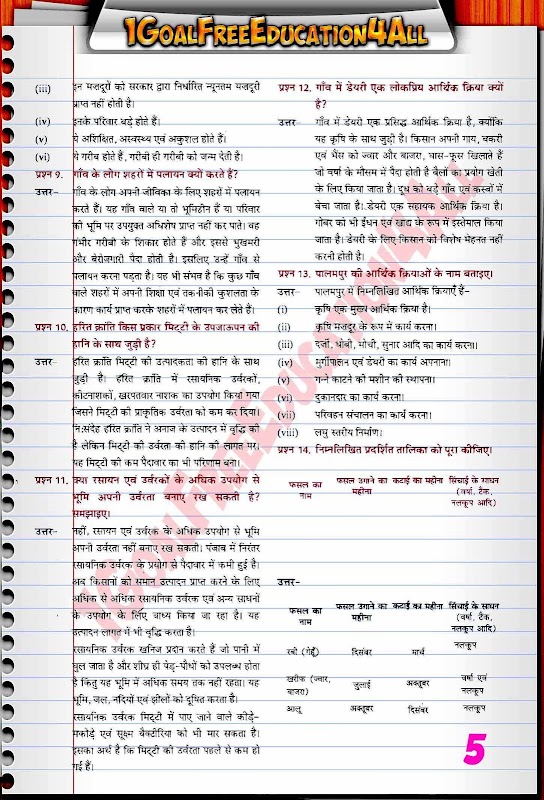 1GoalFreeEducation4All
(iii) इन मजदूरों को सरकार द्वारा निर्धारित न्यूनतम मजदूरी
प्राप्त नहीं होती है।
(iv) इनके परिवार बड़े होते हैं।
(v) ये अशिक्षित, अस्वस्थ एवं अकुशल होते हैं।
(vi) ये गरीब होते हैं, गरीबी ही गरीबी को जन्म देती है।
प्रश्न 9. गाँव के लोग शहरों में पलायन क्यों करते हैं?
उत्तर- गाँव के लोग अपनी जीविका के लिए शहरों में पलायन
करते हैं। यह गाँव वाले या तो भूमिहीन हैं या परिवार
की भूमि पर उपयुक्त अधिशेष प्राप्त नहीं कर पाते। वह
गंभीर गरीबी के शिकार होते हैं और इससे भुखमरी
और बेरोजगारी पैदा होती है। इसलिए उन्हें गाँव से
पलायन करना पड़ता है। यह भी संभव है कि कुछ गाँव
वाले शहरों में अपनी शिक्षा एवं तकनीकी कुशलता के
कारण कार्य प्राप्त करके शहरों में पलायन कर लेते हैं।
प्रश्न 10. हरित क्रांति किस प्रकार मिट्टी के उपजाऊपन की
हानि के साथ जुड़ी है?
उत्तर- हरित क्रांति मिट्टी की उत्पादकता की हानि के साथ
जुड़ी है। हरित क्रांति में रसायनिक उर्वरकों,
कीटनाशकों, खरपतवार नाशक का उपयोग किया गया
जिसने मिट्टी की प्राकृतिक उर्वरता को कम कर दिया।
नि:संदेह हरित क्रांति ने अनाज के उत्पादन में वृद्धि की
है लेकिन मिट्टी की उर्वरता की हानि की लागत पर।
यह मिट्टी की कम पैदावार का भी परिणाम बना।
प्रश्न 11. क्या रसायन एवं उर्वरकों के अधिक उपयोग से
भूमि अपनी उर्वरता बनाए रख सकती है?
समझाइए।
उत्तर- नहीं, रसायन एवं उर्वरक के अधिक उपयोग से भूमि
अपनी उर्वरता नहीं बनाए रख सकती। पंजाब में निरंतर
रसायनिक उर्वरक के प्रयोग से पैदावार में कमी हुई है।
अब किसानों को समान उत्पादन प्राप्त करने के लिए
अधिक से अधिक रसायनिक उर्वरक एवं अन्य साधनों
के उपयोग के लिए बाध्य किया जा रहा है। यह
उत्पादन लागत में भी वृद्धि करता है।
रसायनिक उर्वरक खनिज प्रदान करते हैं जो पानी में
घुल जाता है और शीघ्र ही पेड़-पौधों को उपलब्ध होता
है किंतु यह भूमि में अधिक समय तक नहीं रहता। यह
भूमि, जल, नदियों एवं झीलों को दूषित करता है।
रसायनिक उर्वरक मिट्टी में पाए जाने वाले कीड़े-
मकोड़े एवं सूक्ष्म बैक्टीरिया को भी मार सकता है।
इसका अर्थ है कि मिट्टी की उर्वरता पहले से कम हो
गई है।
प्रश्न 12. गाँव में डेयरी एक लोकप्रिय आर्थिक क्रिया क्यों
है?
उत्तर- गाँव में डेयरी एक प्रसिद्ध आर्थिक क्रिया है, क्योंकि
यह कृषि के साथ जुड़ी है। किसान अपनी गाय, बकरी
एवं भैंस को ज्वार और बाजरा, घास-फूस खिलाते हैं
जो वर्षा के मौसम में पैदा होती है बैलों का प्रयोग खेती
के लिए किया जाता है। दूध को बड़े गाँव एवं कस्बों में
बेचा जाता है। डेयरी एक सहायक आर्थिक क्रिया है।
गोबर को भी ईंधन एवं खाद्य के रूप में इस्तेमाल किया
जाता है। डेयरी के लिए किसान को विशेष मेहनत नहीं
करनी होती है।
प्रश्न 13. पालमपुर की आर्थिक क्रियाओं के नाम बताइए।
उत्तर- पालमपुर में निम्नलिखित आर्थिक क्रियाएँ हैं-
(i) कृषि एक मुख्य आर्थिक क्रिया है।
(ii) कृषि मजदूर के रूप में कार्य करना।
(iii) दर्जी, धोबी, मोची, सुनार आदि का कार्य करना।
(iv) मुर्गीपालन एवं डेयरी का कार्य अपनाना।
(v) गन्ने काटने की मशीन की स्थापना।
(vi) दुकानदार का कार्य करना।
(vii) परिवहन संचालन का कार्य करना।
(viii) लघु स्तरीय निर्माण।
प्रश्न 14. निम्नलिखित प्रदर्शित तालिका को पूरा कीजिए।
फसल का फसल उगाने का कटाई का महीना सिंचाई के साधन
नाम महीना (वर्षा, टैंक,
नलकूप आदि)
उत्तर-
फसल का फसल उगाने का कटाई का महीना सिंचाई के साधन
नाम महीना (वर्षा, टैंक,
नलकूप आदि)
रबी (गेहूँ) दिसंबर मार्च नलकूप
खरीफ (ज्वार, जुलाई अक्तूबर वर्षा एवं
बाजरा) नलकूप
आलू अक्तूबर दिसंबर नलकूप
5
1GoalFreeEducation4All